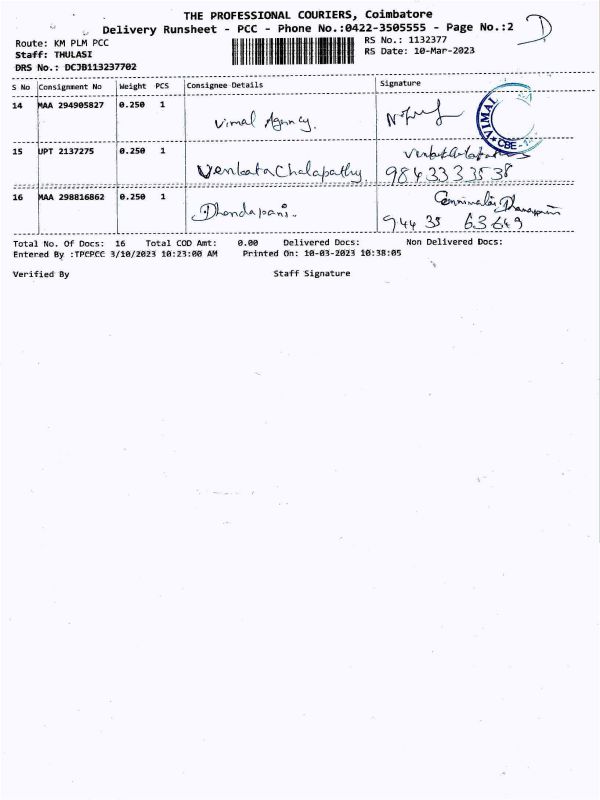 THE PROFESSIONAL COURIERS, Coimbatore
Delivery Runsheet - PCC - Phone No.:0422-3505555 - Page No.:2
D
Route: KM PLM PCC RS No.: 1132377
Staff: THULASI RS Date: 10-Mar-2023
DRS No.: DCJB113237702
S No Consignment No Weight PCS Consignee Details Signature
14 MAA 294905827 0.250 1 Vimal Agency. VIMAL ★ CBE
15 UPT 2137275 0.250 1 Venkata Chalapathy 9843333538
16 MAA 298816862 0.250 1 Dhandapani. 94435 63649
Total No. Of Docs: 16 Total COD Amt: 0.00 Delivered Docs: Non Delivered Docs:
Entered By :TPCPCC 3/10/2023 10:23:00 AM Printed On: 10-03-2023 10:38:05
Verified By Staff Signature